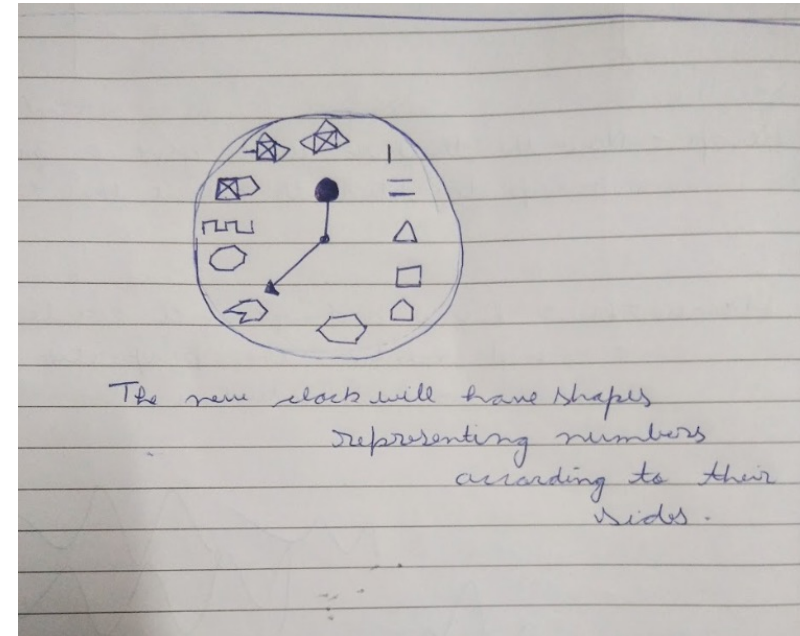 The new clock will have shapes
representing numbers
according to their
sides.